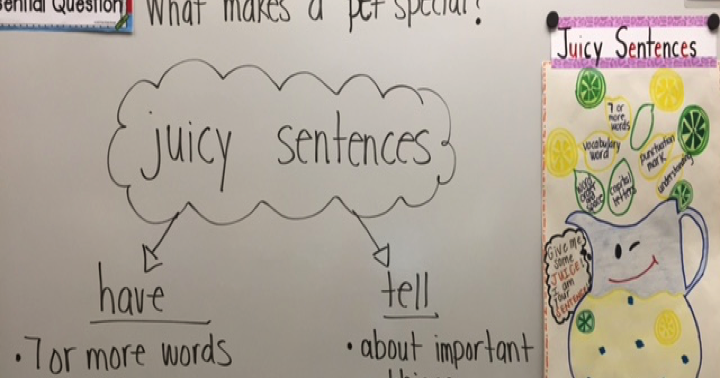 ential Question
What makes a pet special?
juicy sentences
have
• 7 or more words
tell
• about important
things
Juicy Sentences
7 or
more
words
vocabulary
word
punctuation
mark
understanding
capital
letters
Give me
some
JUICE!
I am
your
SENTENCE!